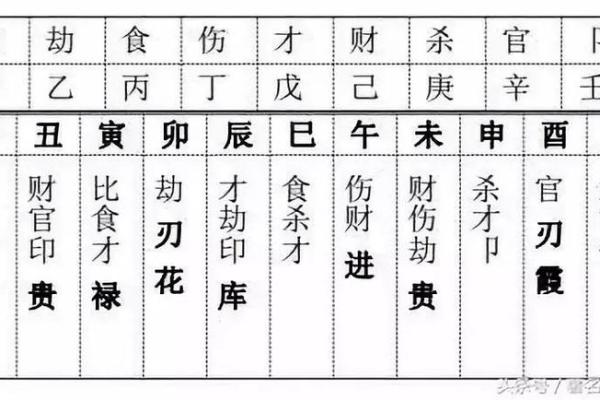 劫 食 伤 才 财 杀 官 卩
乙 丙 丁 戊 己 庚 辛 壬
丑 寅 卯 辰 巳 午 未 申 酉
财官印贵 比食才禄 劫刃花 才劫印库 食杀才 伤财进 财伤劫贵 杀才卩 官刃霞
头条号